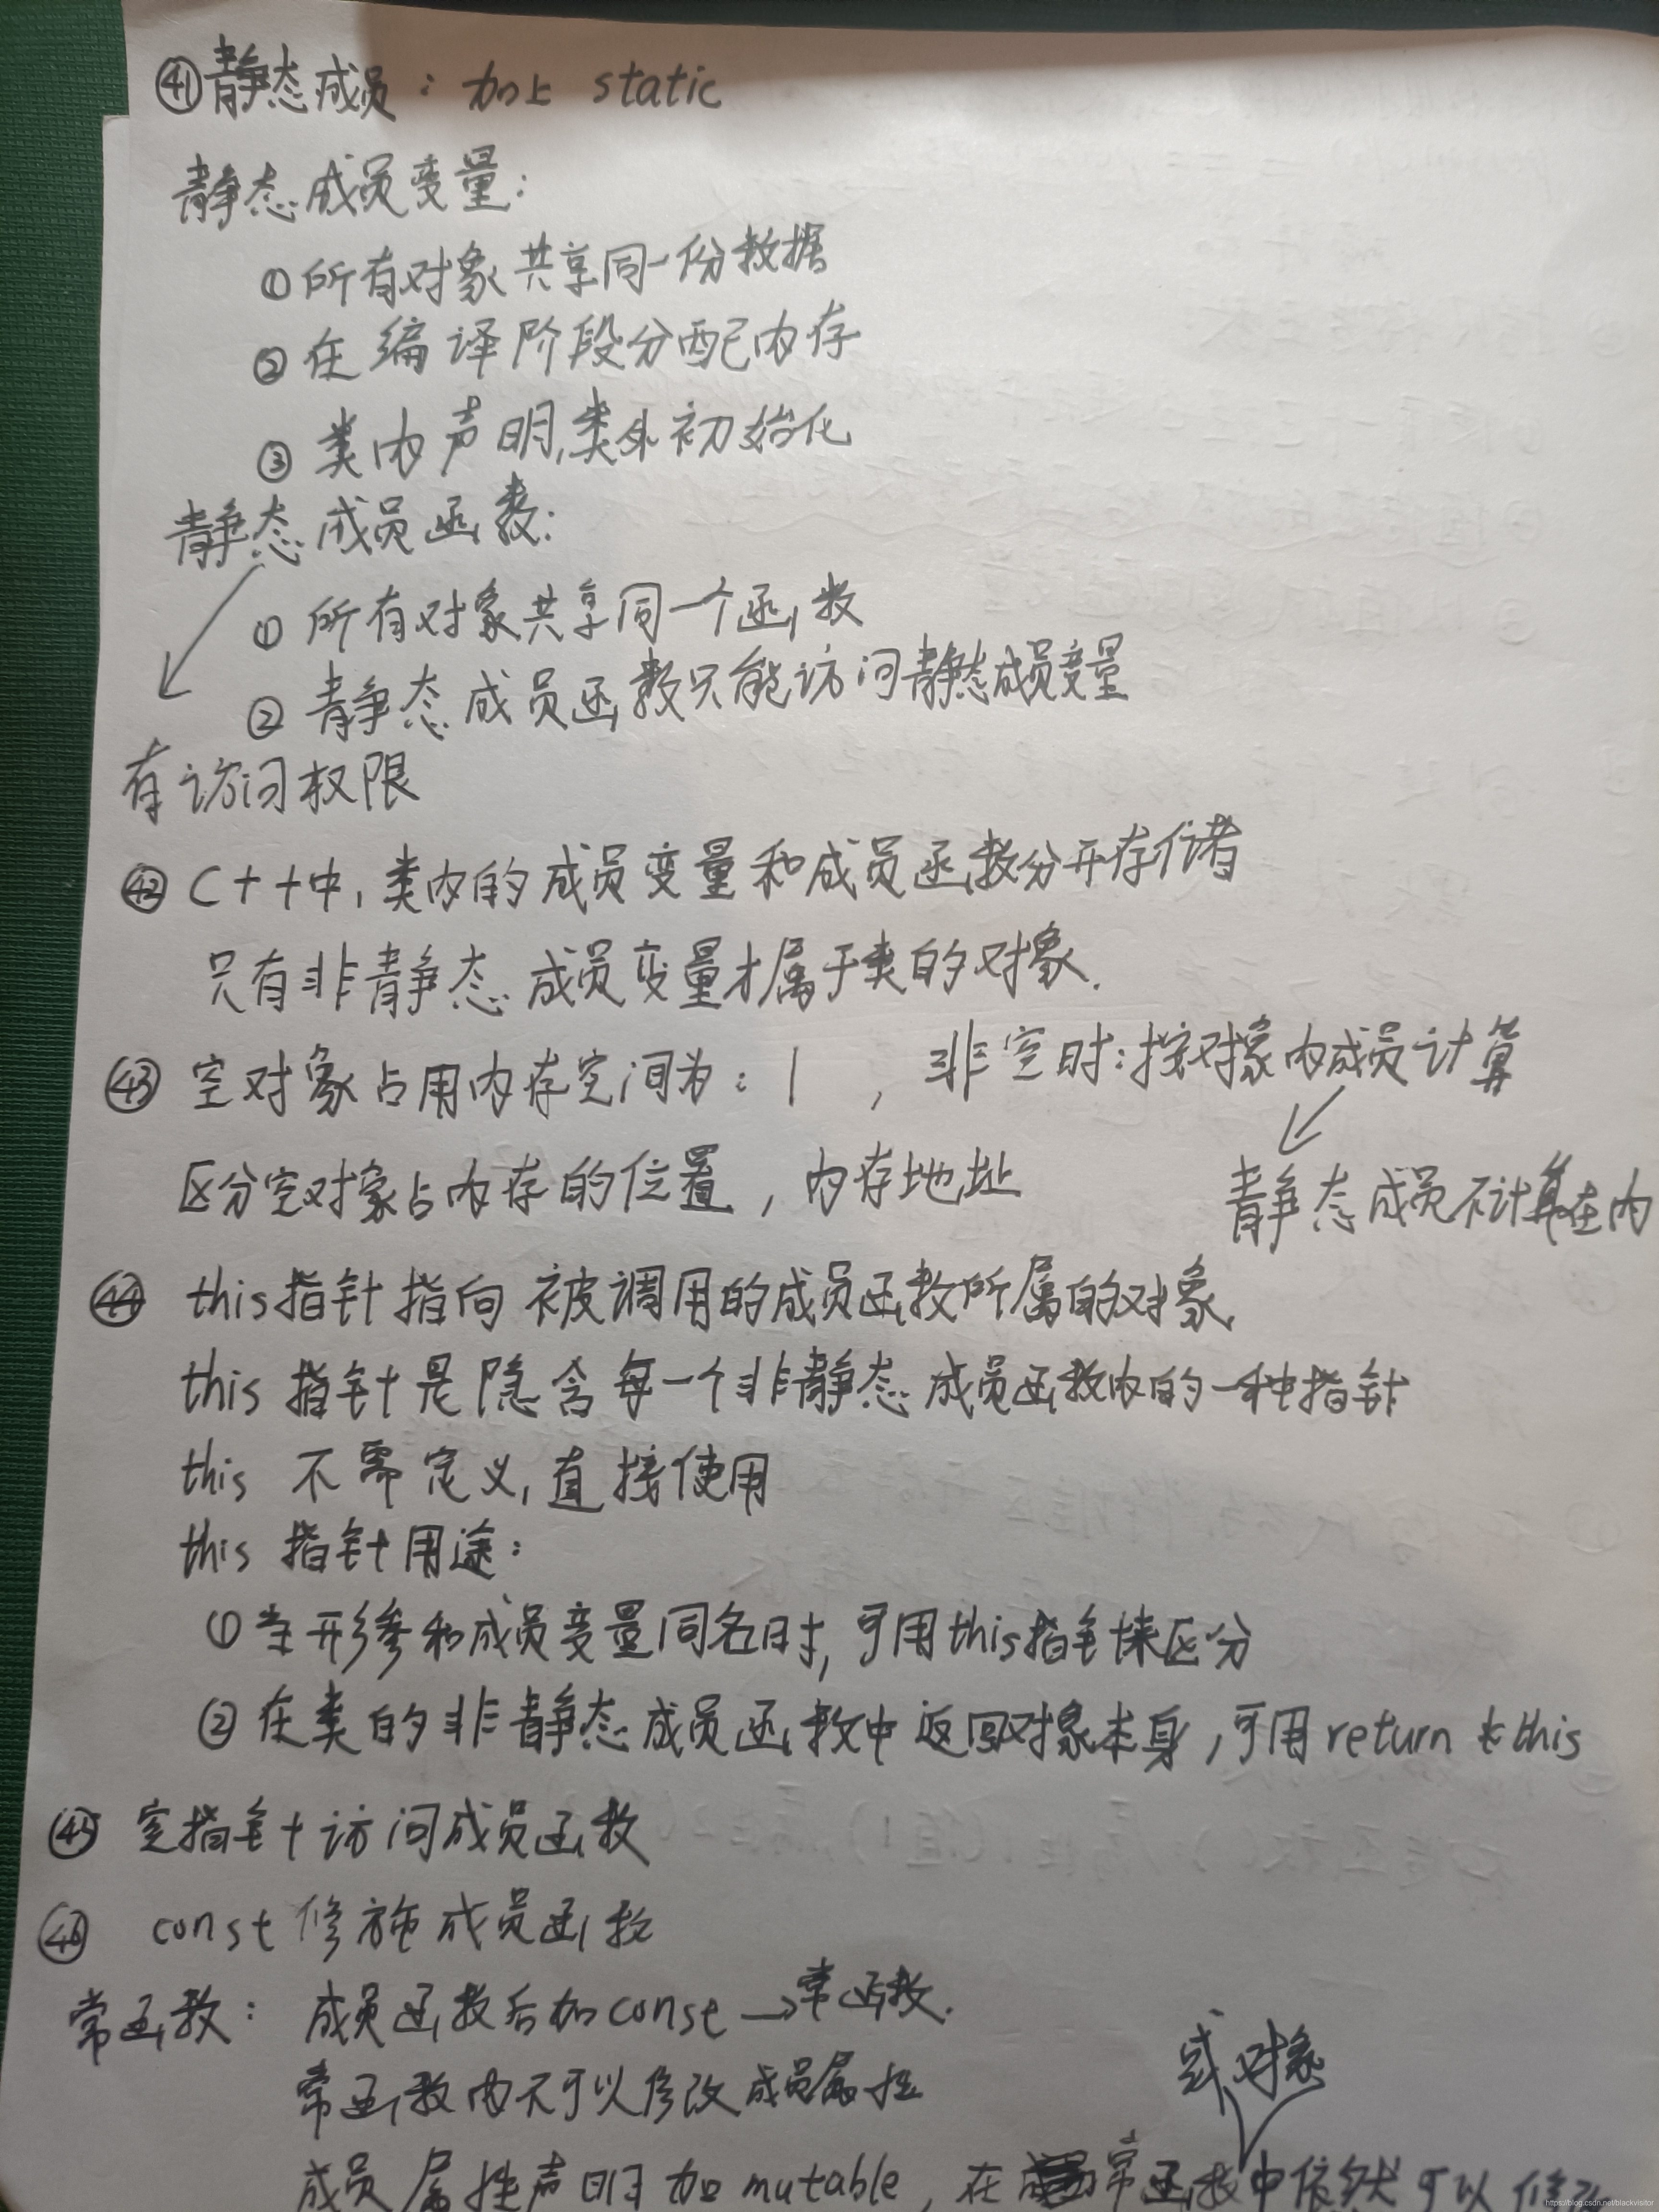 ㊶静态成员：加上 static
静态成员变量：
①所有对象共享同一份数据
②在编译阶段分配内存
③类内声明,类外初始化
静态成员函数：
①所有对象共享同一个函数
②静态成员函数只能访问静态成员变量
有访问权限
㊷C++中,类内的成员变量和成员函数分开存储
只有非静态成员变量才属于类的对象.
㊸空对象占用内存空间为：1，非空时：按对象内成员计算
区分空对象占内存的位置，内存地址
静态成员不计算在内
㊹this指针指向被调用的成员函数所属的对象
this指针是隐含每一个非静态成员函数内的一种指针
this 不需定义,直接使用
this 指针用途：
①当形参和成员变量同名时,可用this指针来区分
②在类的非静态成员函数中返回对象本身,可用return *this
㊺空指针访问成员函数
㊻const修施成员函数
常函数：成员函数后加const→常函数.
常函数内不可以修改成员属性
或对象
成员属性声明加mutable,在常函数中依然可以修改
https://blog.csdn.net/blackvisitor